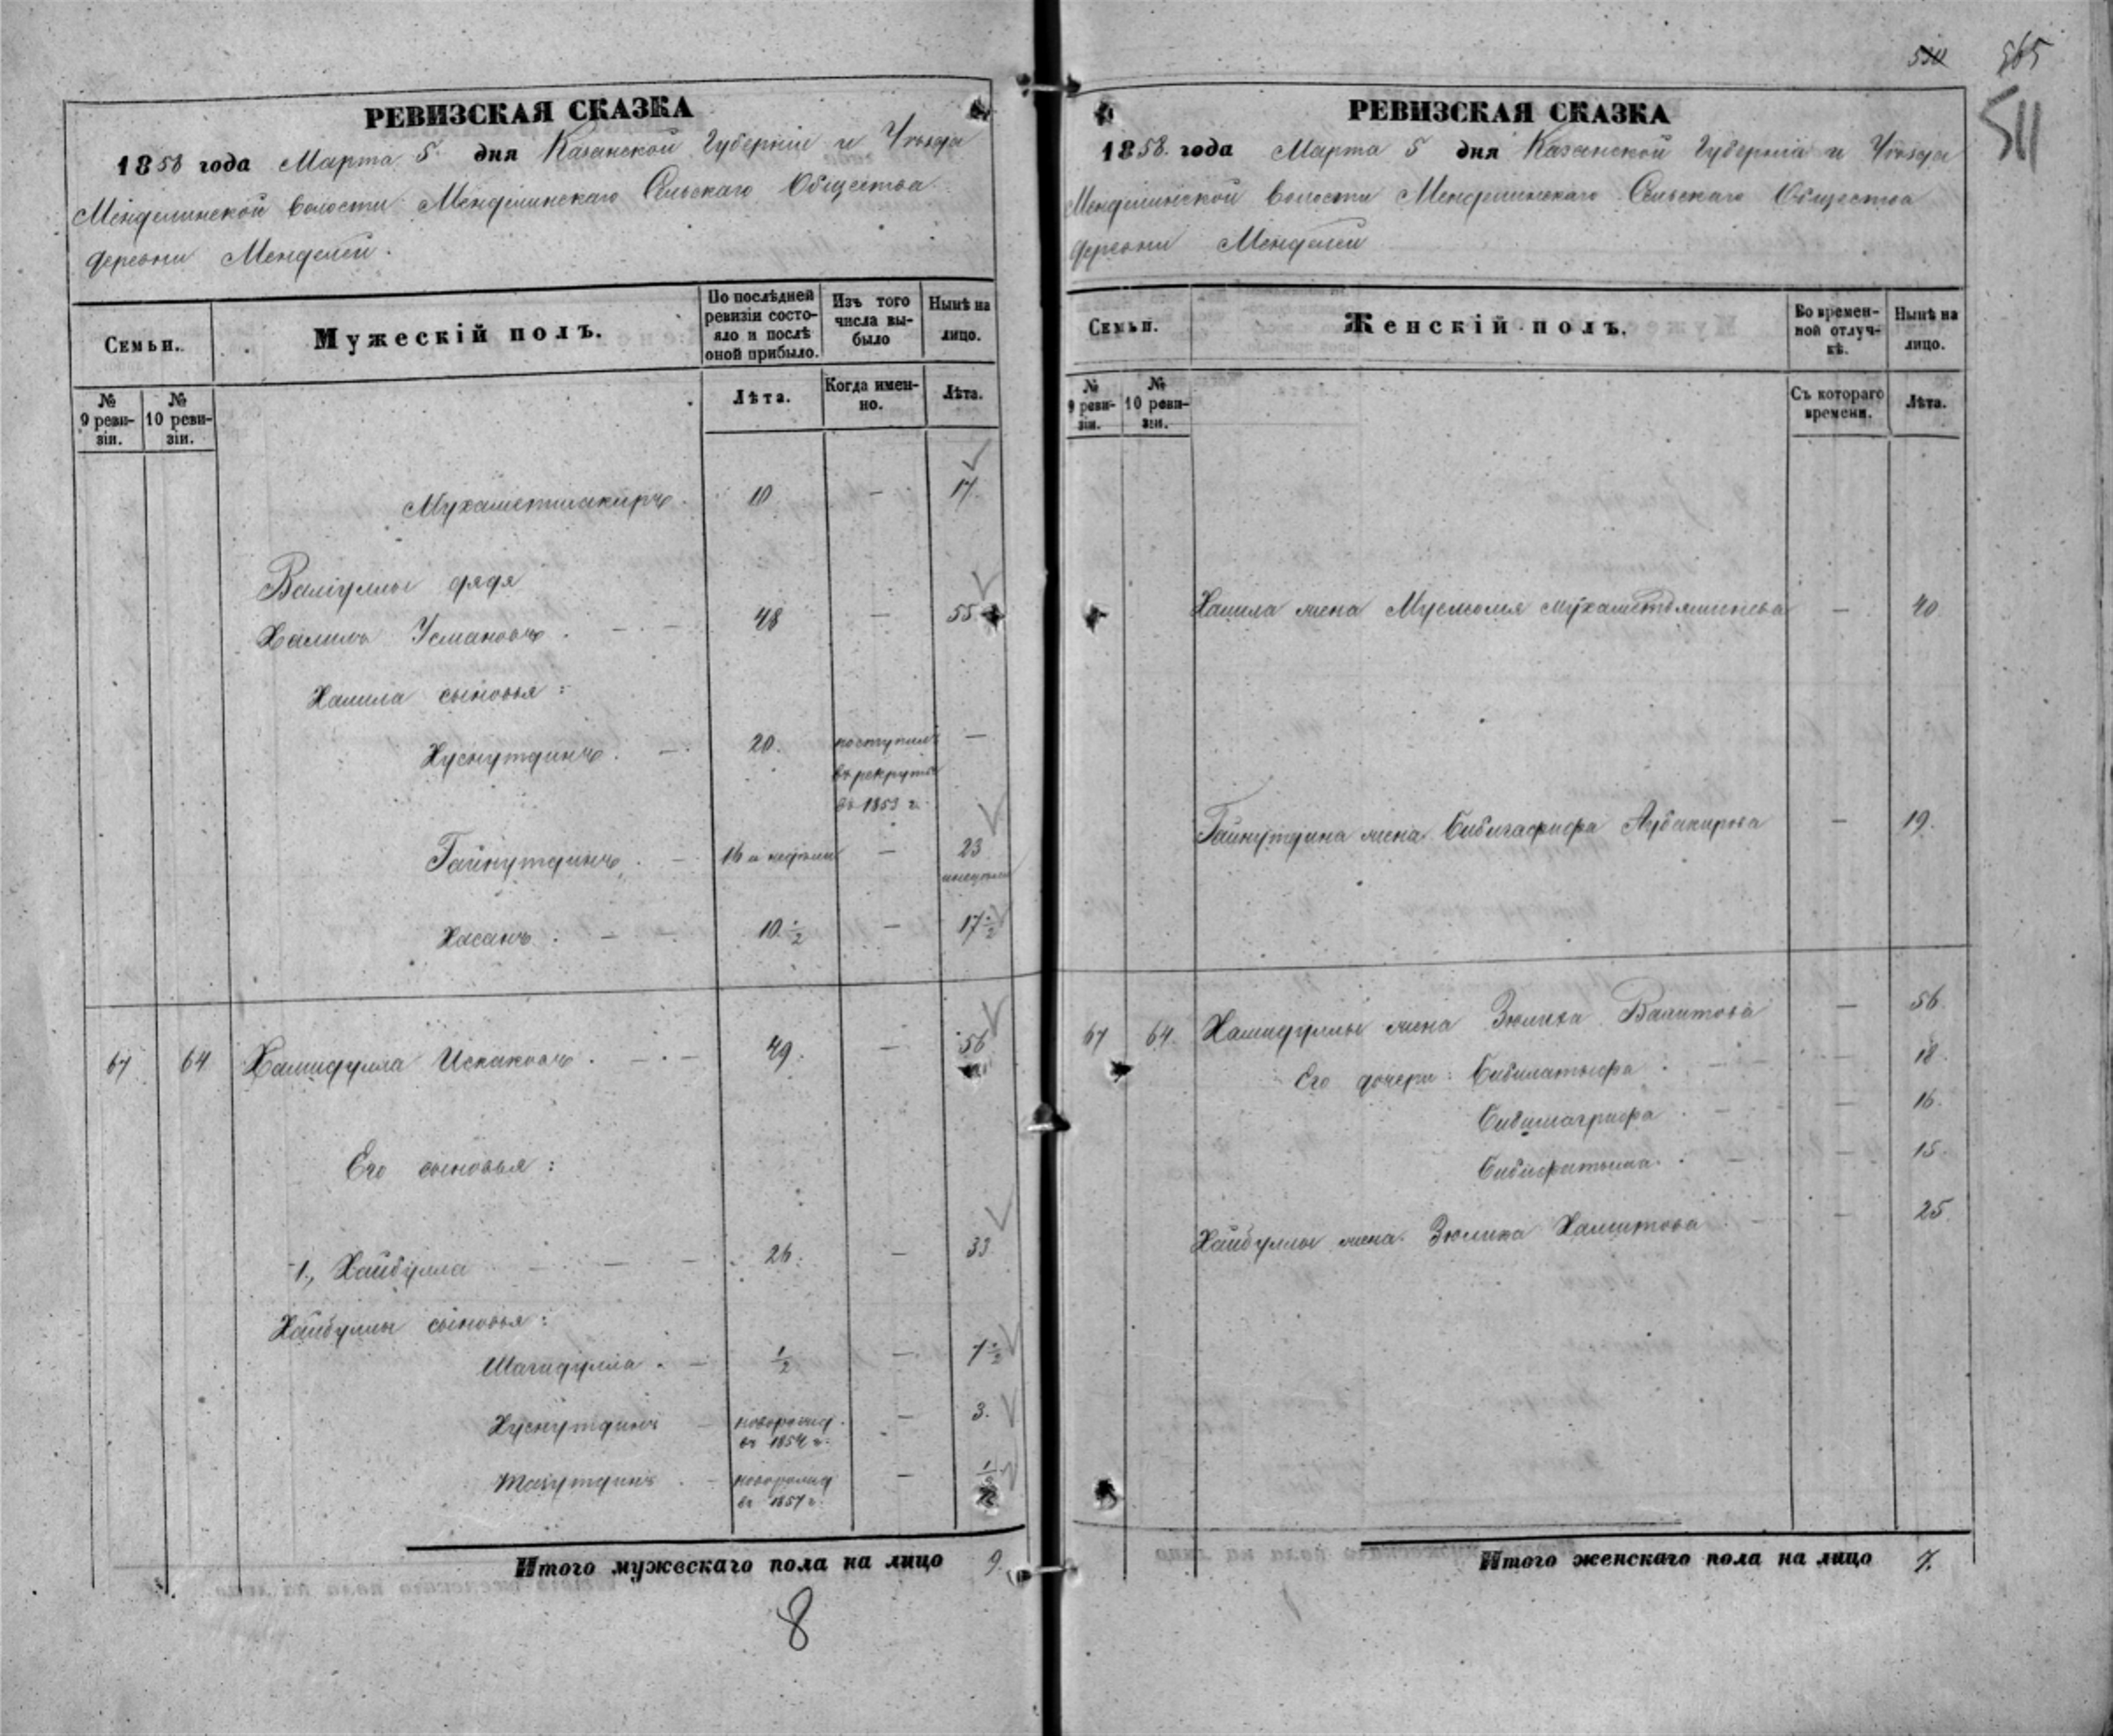 530 565
511
РЕВИЗСКАЯ СКАЗКА
1858 года Марта 5 дня Казанской Губерніи и Уѣзда
Менделинской волости Менделинскаго Сельскаго Общества
деревни Менделей.
Семьи.
Мужескій полъ.
По послѣдней ревизіи состояло и послѣ оной прибыло.
Изъ того числа выбыло
Нынѣ на лицо.
№ 9 ревизіи.
№ 10 ревизіи.
Лѣта.
Когда именно.
Лѣта.
Мухаметшакиръ. 10 — 17.
Валіуллы дядя
Халилъ Усмановъ. — 48 — 55
Халила сыновья:
Хуснутдинъ. — 20. поступилъ —
въ рекруты
въ 1853 г.
Гайнутдинъ. — 16 и недѣли — 23
Хасанъ. — 10 1/2 — 17 1/2
67 64 Хамидулла Исхаковъ. — 49. — 56
Его сыновья:
1., Хайбулла — — 26. — 33
Хайбуллы сыновья:
Шагидулла. — 1/2 — 7 1/2
Хуснутдинъ — новорожд. — 3.
въ 1854 г.
новорожд —
въ 1857 г.
Итого мужескаго пола на лицо 9.
8
РЕВИЗСКАЯ СКАЗКА
1858. года Марта 5 дня Казанской Губерніи и Уѣзда
Менделинской волости Менделинскаго Сельскаго Общества
деревни Менделей
Семьи.
Женскій полъ.
Во временной отлучкѣ.
Нынѣ на лицо.
№ 9 ревизіи.
№ 10 ревизіи.
Съ котораго времени.
Лѣта.
Халила жена — 40
Гайнутдина жена Бибигафифа Аубакирова — 19.
67 64 Хамидуллы жена Зюлиха Валитова — 56.
Его дочери: Бибилатыфа. — — 18.
Бибишарифа. — — 16.
Бибифатыма. — — 15.
Хайбуллы жена Зюлиха Халитова — 25
Итого женскаго пола на лицо 7.